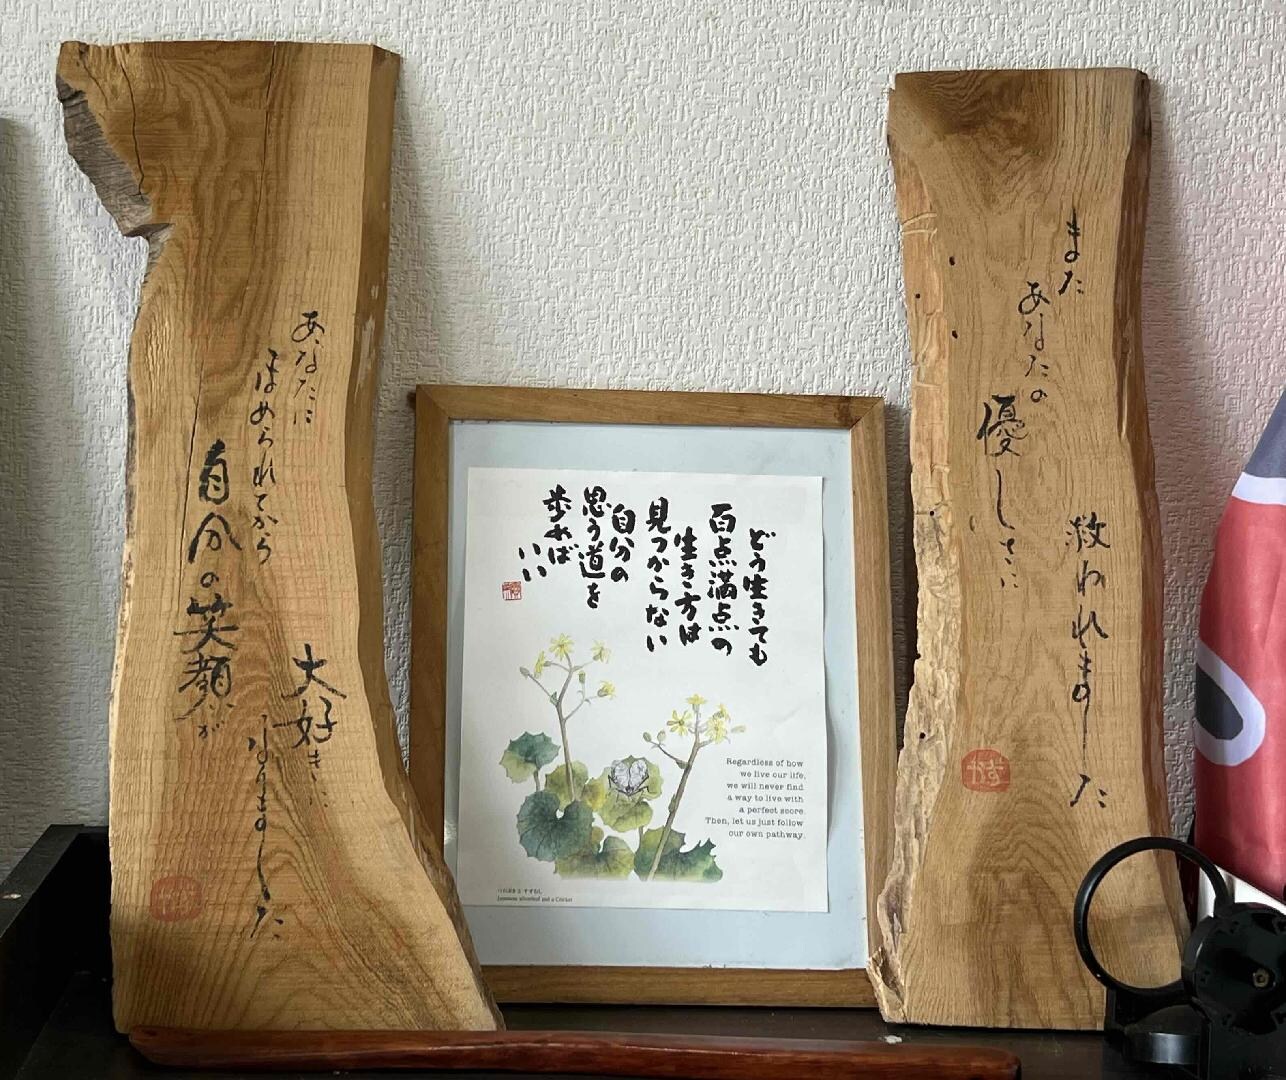 あなたに
ほめられてから
自分の笑顔が
大好きに
なりました
どう生きても
百点満点の
生き方は
見つからない
自分の
思う道を
歩めば
いい
Regardless of how
we live our life,
we will never find
a way to live with
a perfect score.
Then, let us just follow
our own pathway.
つわぶき と すずむし
Japanese silverleaf and a Cricket
また
あなたの
優しさに
救われました
かず